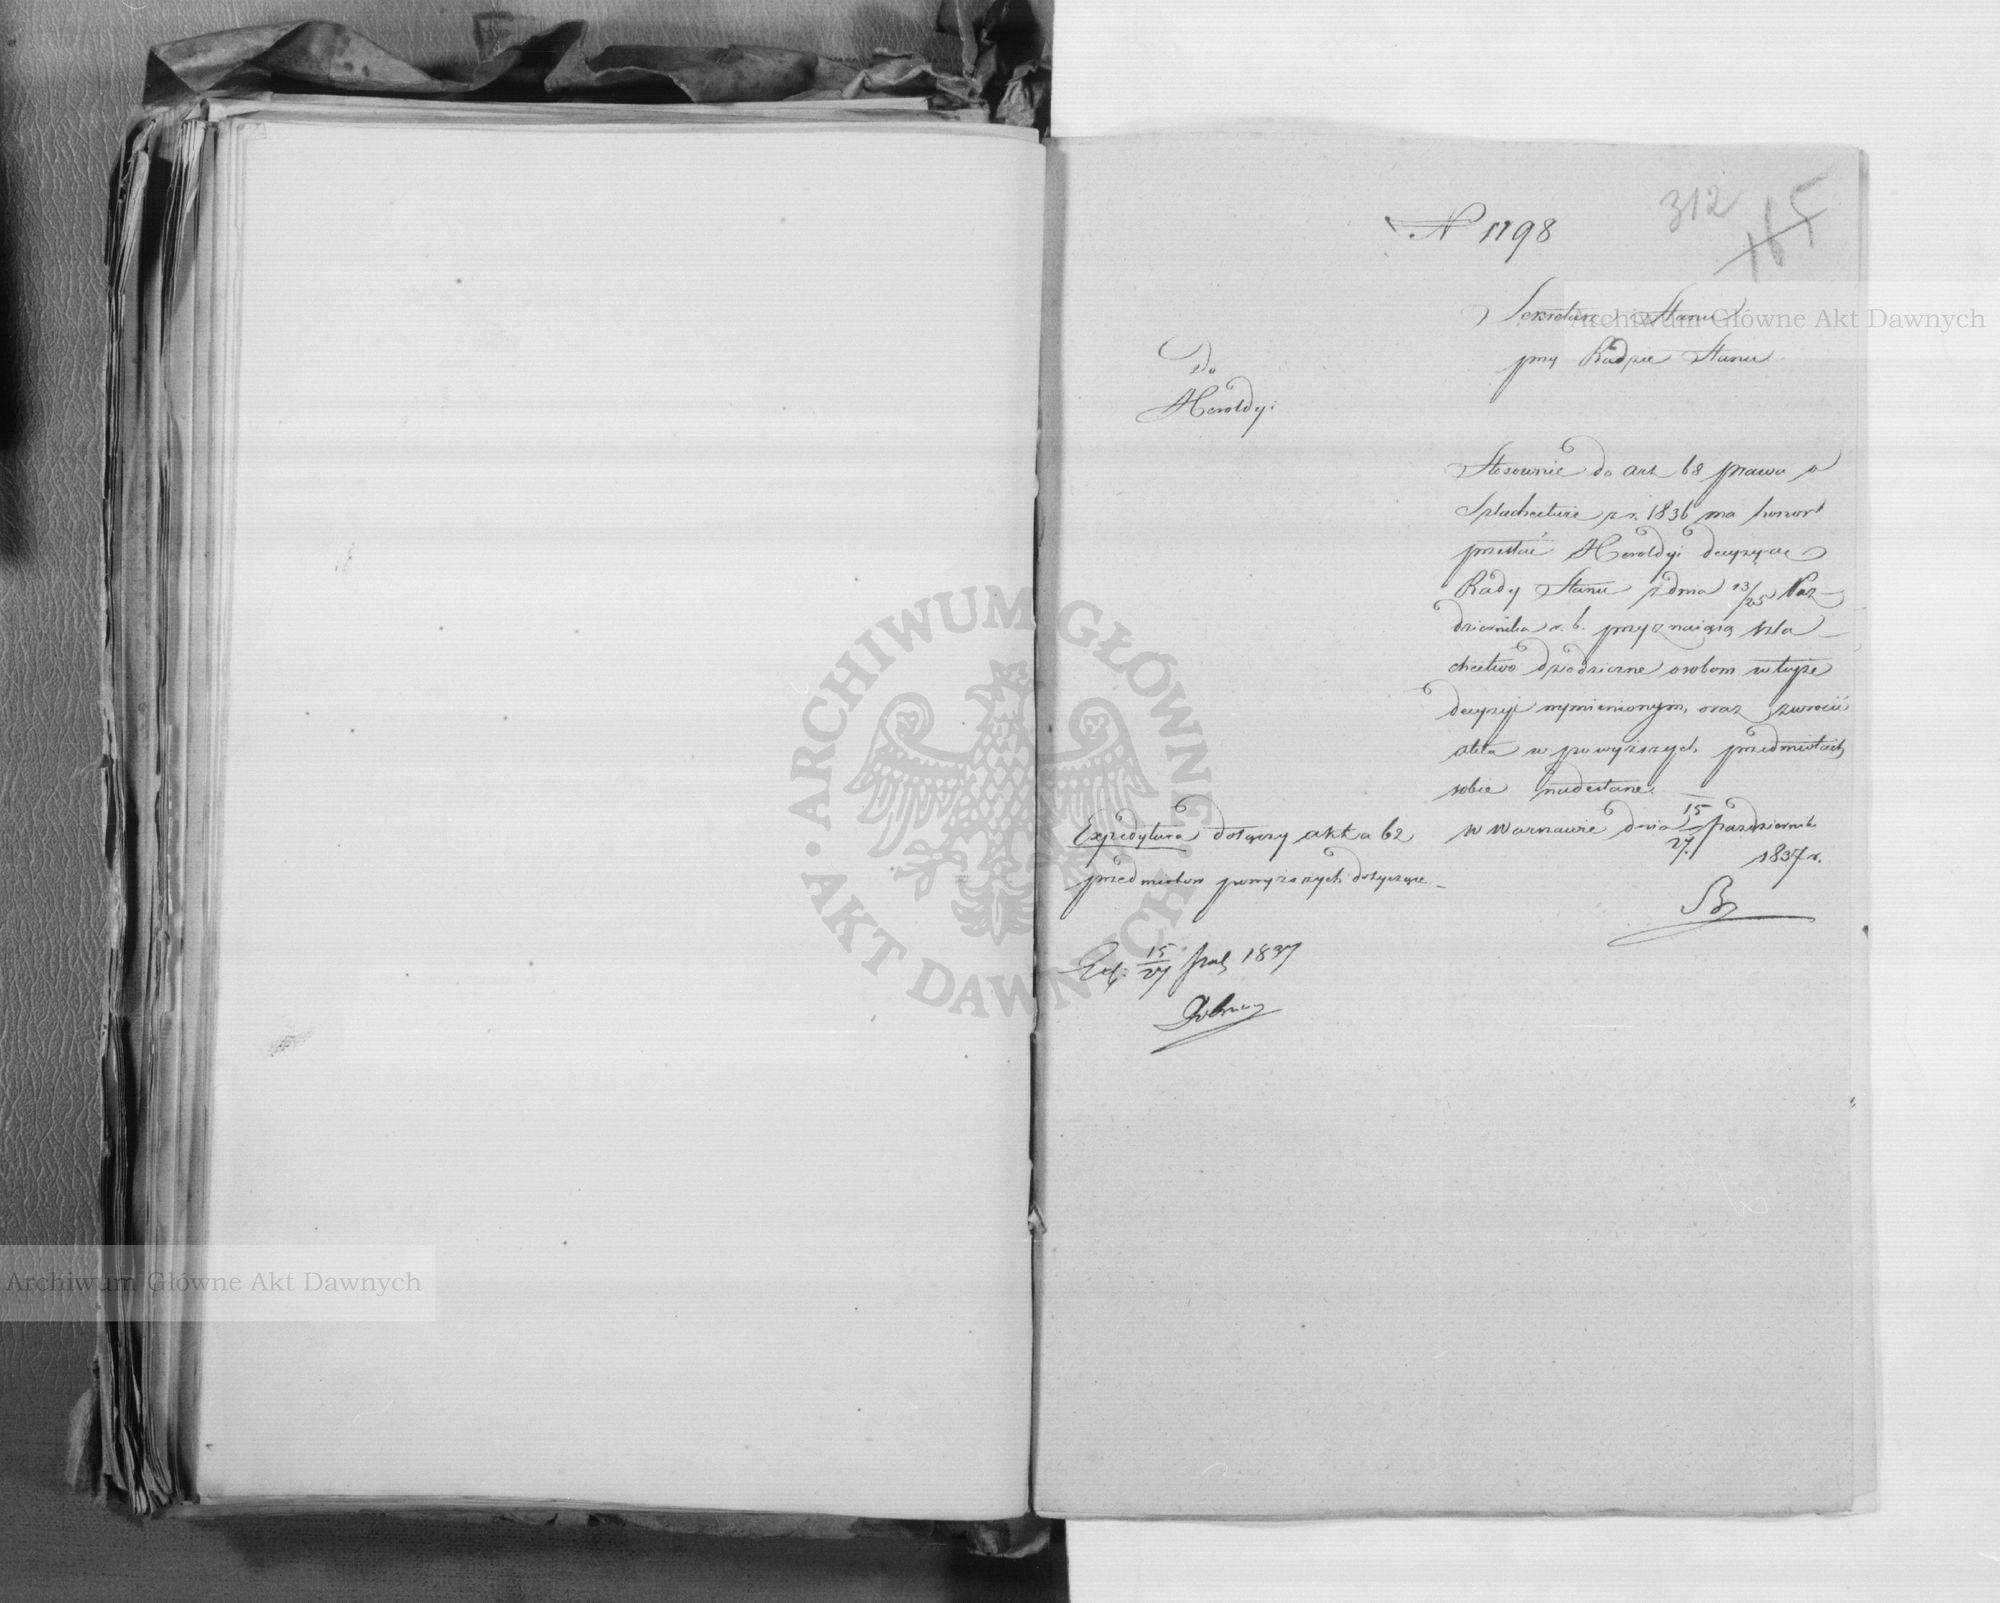 312
165
N 1198
Sekretarz Stanu
przy Radzie Stanu
Do
Heroldyi
Stosownie do art 68 prawa o
Szlachectwie z r. 1836 ma honor
przesłać Heroldyi decyzye
Rady Stanu z dnia 13/25 Paz-
dziernika r. b. przyznaiącą szla-
chectwo dziedziczne osobom w teyże
decyzyi wymienionym, oraz zwrócić
akta w powyższych przedmiotach
sobie nadesłane.
w Warszawie dnia 15/27 Pazdziernik
1837 r.
Expedytura dołączy akta 62
przedmiotow powyższych dotyczące
Exp: 15/27 Paź 1837
Archiwum Główne Akt Dawnych
ARCHIWUM GŁÓWNE
AKT DAWNYCH
Archiwum Główne Akt Dawnych